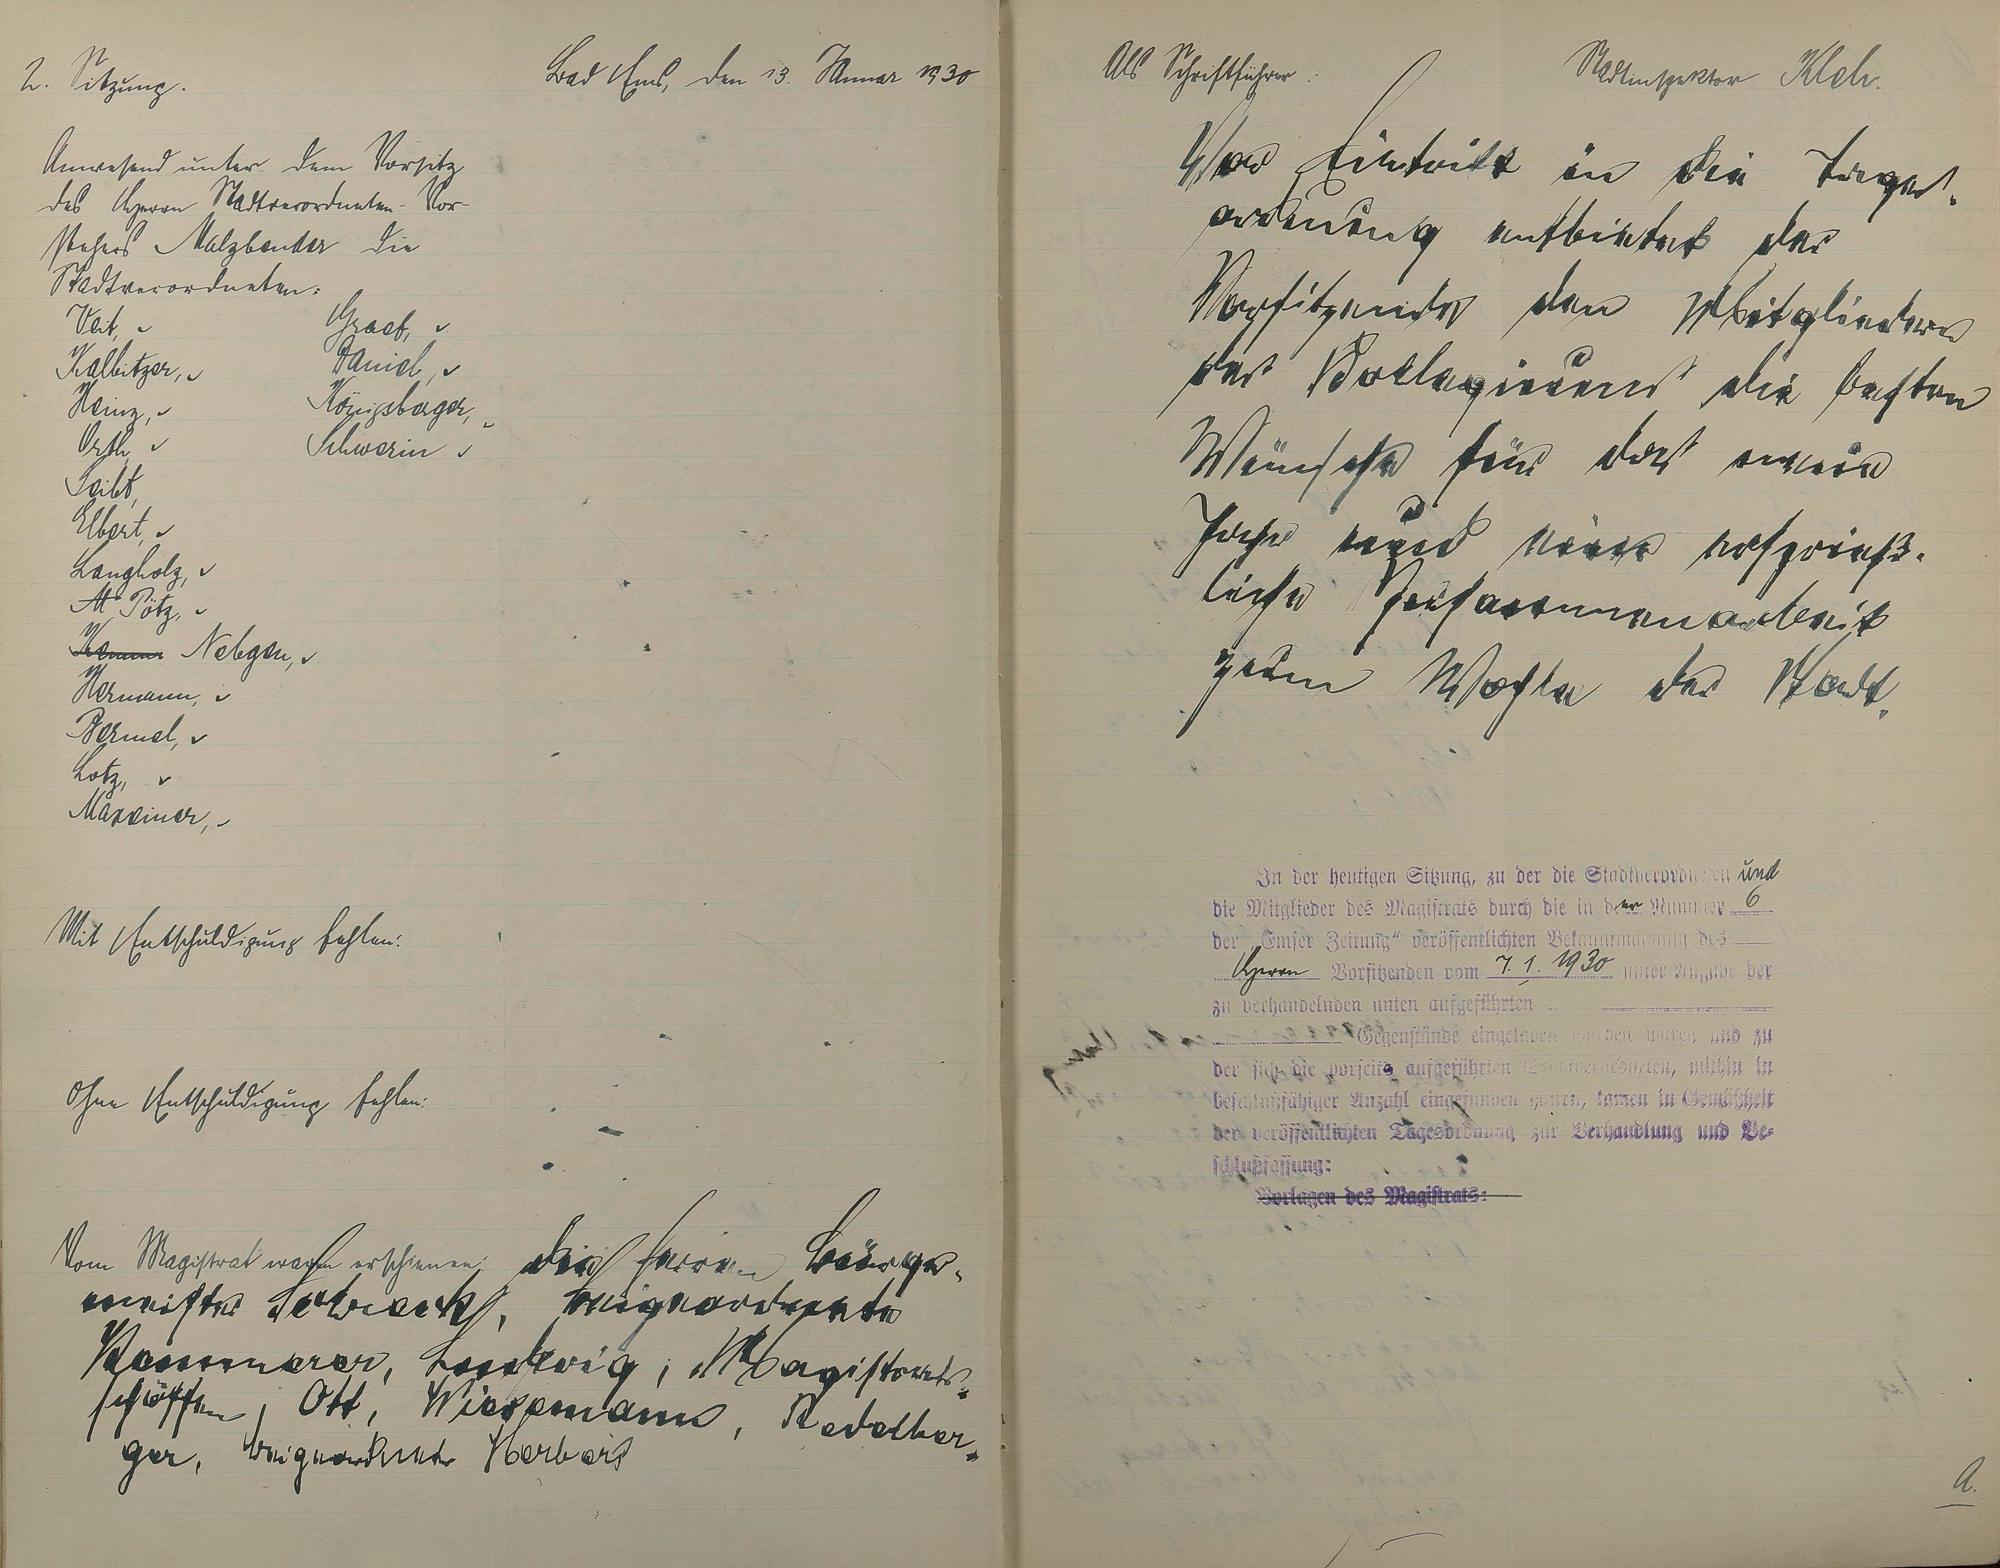 2. Sitzung.
Bad Ems, den 13. Januar 1930
Anwesend unter dem Vorsitz
des Herrn Stadtverordneten-Vor-
stehers Malzbender die
Stadtverordneten:
Veit, Graef,
Kalbitzer, Daniel,
Heinz, Königsberger,
Orth, Schwerin
Seibt,
Elbert,
Langholz,
Pötz,
Nebgen,
Hermann,
Bermel,
Lotz,
Maxeiner,
Mit Entschuldigung fehlen:
Ohne Entschuldigung fehlen:
Vom Magistrat waren erschienen: die Herren Bürger-
meister Schwarz, Beigeordnete
Kammerer, Ludwig, Magistrats-
schöffen, Ott, Wiessmann, Redelber-
ger, Beigeordneter Herbert
Als Schriftführer: Stadtinspektor
Vor Eintritt in die Tages-
ordnung entbietet der
Vorsitzende den Mitgliedern
des Kollegiums die besten
Wünsche für das neue
Jahr und eine ersprieß-
liche Zusammenarbeit
zum Wohle der Stadt.
In der heutigen Sitzung, zu der die Stadtverordneten und
die Mitglieder des Magistrats durch die in der Nummer 6
der „Emser Zeitung“ veröffentlichten Bekanntmachung des
Herrn Vorsitzenden vom 7. 1. 1930 unter Angabe der
zu verhandelnden unten aufgeführten
Gegenstände eingeladen worden waren und zu
der sich die vorseits aufgeführten Stadtverordneten, mithin in
beschlußfähiger Anzahl eingefunden hatten, kamen in Gemäßheit
der veröffentlichten Tagesordnung zur Verhandlung und Be-
schlußfassung:
Vorlagen des Magistrats:
A.